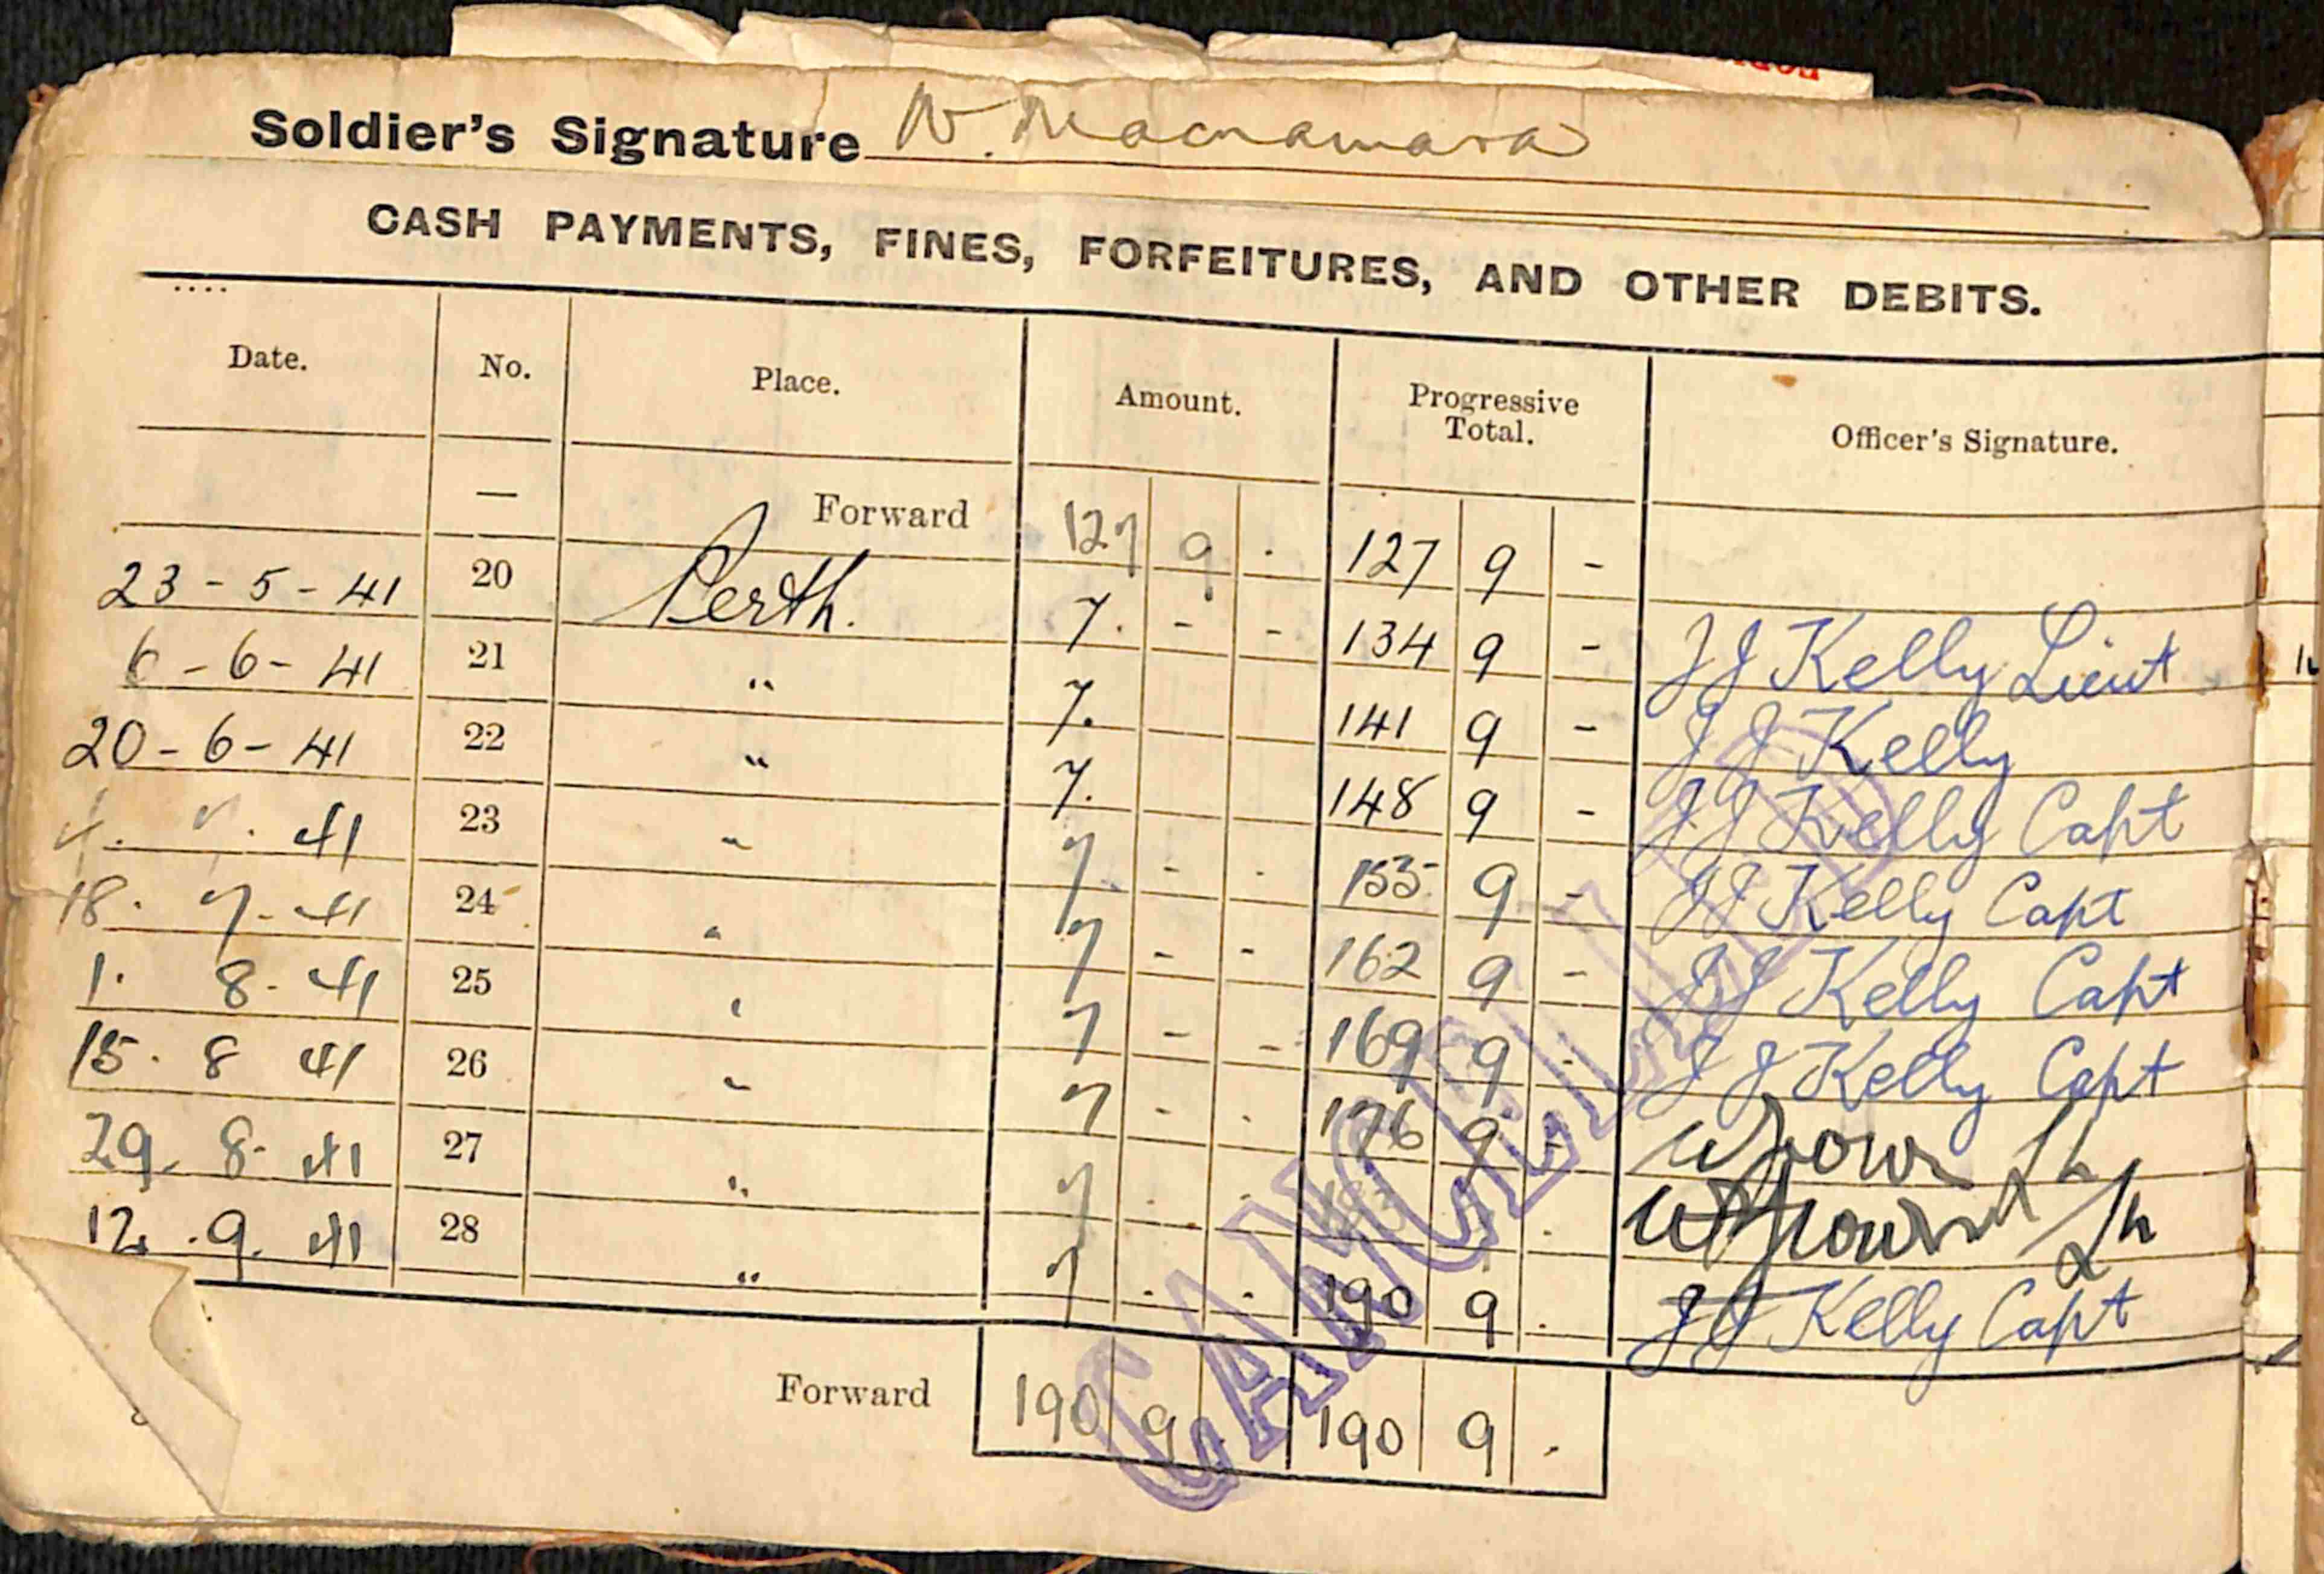 Soldier's Signature W. Macnamara
CASH PAYMENTS, FINES, FORFEITURES, AND OTHER DEBITS.
Date. No. Place. Amount. Progressive Total. Officer's Signature.
— Forward 127 9 . 127 9 -
23 - 5 - 41 20 Perth. 7. - - 134 9 - JJ Kelly Lieut
6 - 6 - 41 21 " 7. 141 9 - JJ Kelly
20 - 6 - 41 22 " 7. 148 9 - JJ Kelly Capt
41 23 " 7 - - 155 9 - JJ Kelly Capt
18. 7. 41 24 " 7 - - 162 9 - JJ Kelly Capt
1. 8. 41 25 " 7 - - 169 9 - JJ Kelly Capt
15. 8 41 26 " 7 - . 176 9 -
29. 8. 41 27 " 7 . . 183 .
12. .9. 41 28 " 7 . . 190 9 . JJ Kelly Capt
Forward 190 9 . 190 9 .
CANCELLED